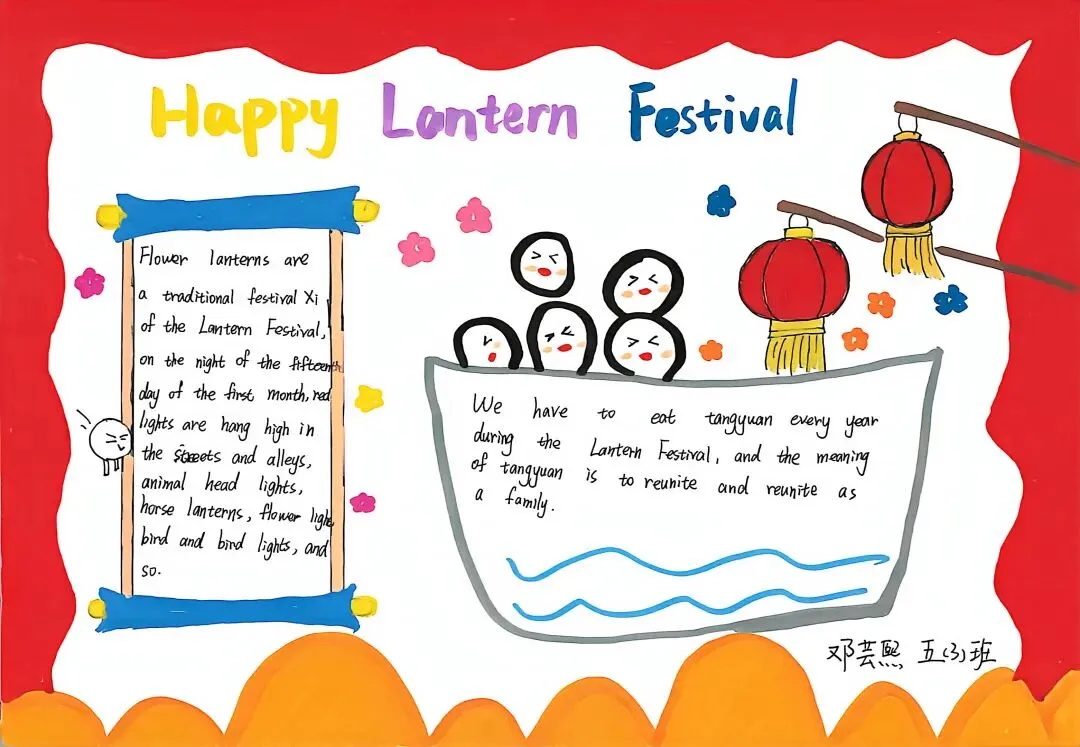 Happy Lantern Festival
Flower lanterns are
a traditional festival Xi
of the Lantern Festival,
on the night of the fifteenth
day of the first month, red
lights are hang high in
the streets and alleys,
animal head lights,
horse lanterns, flower light
bird and bird lights, and
so.
We have to eat tangyuan every year
during the Lantern Festival, and the meaning
of tangyuan is to reunite and reunite as
a family.
邓芸熙 五(3)班